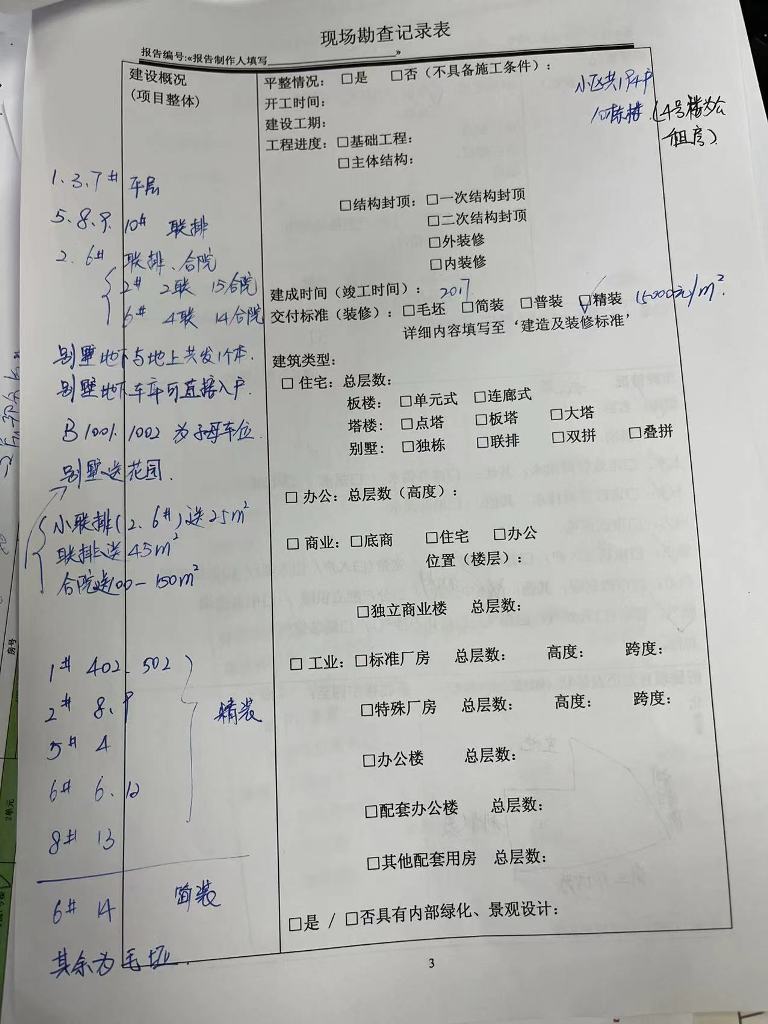 现场勘查记录表
报告编号:«报告制作人填写»
建设概况
(项目整体)
平整情况: □是 □否(不具备施工条件):
开工时间:
建设工期:
工程进度: □基础工程:
□主体结构:
(4号楼为公
租房)
1.3.7# 平层
5.8.9. 10# 联排
2. 6# 联排、合院
2# 2联 15合院
6# 4联 14合院
别墅地下与地上共发1个本.
别墅地下车库可直接入户
B1001. 1002 为子母车位.
别墅送花园.
小联排(2.6#)送25m²
联排送45m²
1# 402. 502
2# 8. 9
5# 4
6# 6. 12
8# 13
精装
6# 14 简装
其余为毛坯.
□结构封顶: □一次结构封顶
□二次结构封顶
□外装修
□内装修
建成时间(竣工时间): 2017
交付标准(装修): □毛坯 □简装 □普装 □精装 15000元/m².
详细内容填写至‘建造及装修标准’
建筑类型:
□ 住宅: 总层数:
板楼: □单元式 □连廊式
塔楼: □点塔 □板塔 □大塔
别墅: □独栋 □联排 □双拼 □叠拼
□ 办公: 总层数(高度):
□ 商业: □底商 □住宅 □办公
位置(楼层):
□独立商业楼 总层数:
□ 工业: □标准厂房 总层数: 高度: 跨度:
□特殊厂房 总层数: 高度: 跨度:
□办公楼 总层数:
□配套办公楼 总层数:
□其他配套用房 总层数:
□是 / □否具有内部绿化、景观设计:
3
房号
2单元